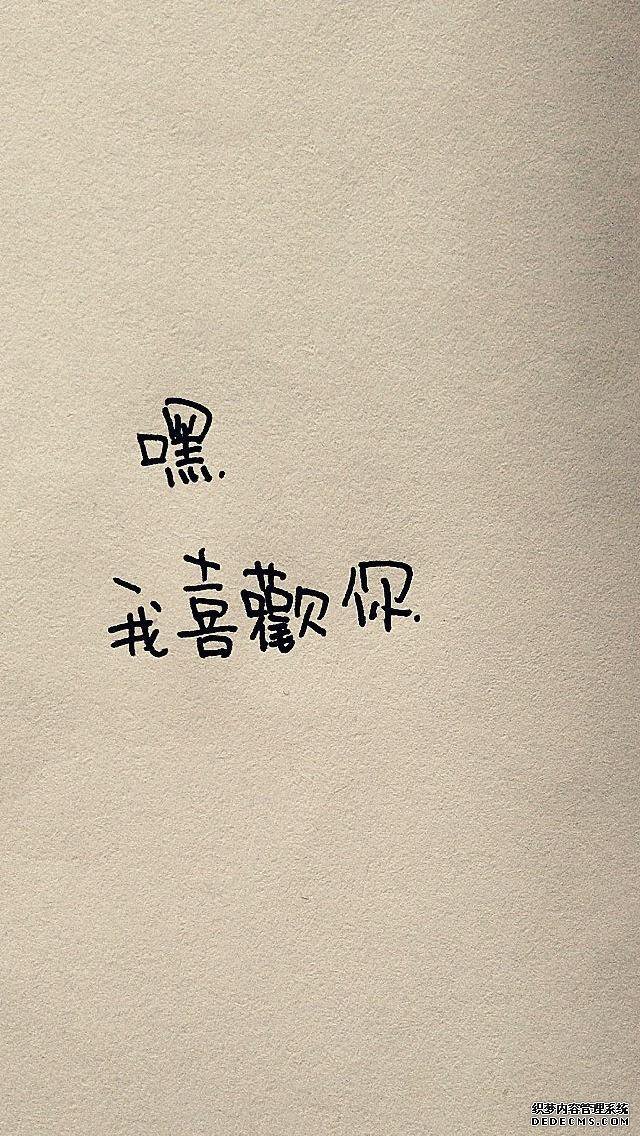 嘿.
我喜歡你.
织梦内容管理系统
DEDECMS.COM